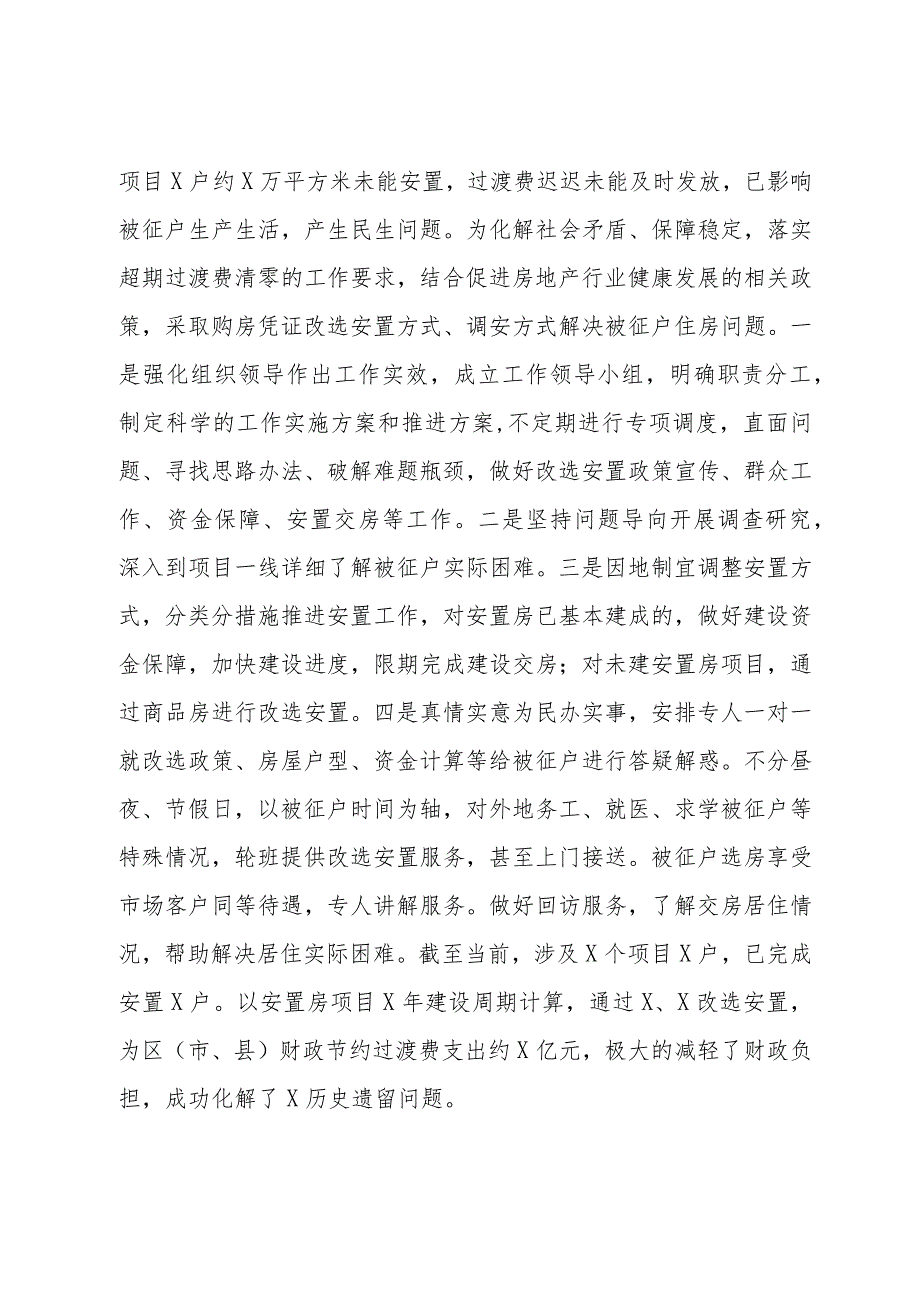 项目 X 户约 X 万平方米未能安置，过渡费迟迟未能及时发放，已影响
被征户生产生活，产生民生问题。为化解社会矛盾、保障稳定，落实
超期过渡费清零的工作要求，结合促进房地产行业健康发展的相关政
策，采取购房凭证改选安置方式、调安方式解决被征户住房问题。一
是强化组织领导作出工作实效，成立工作领导小组，明确职责分工，
制定科学的工作实施方案和推进方案,不定期进行专项调度，直面问
题、寻找思路办法、破解难题瓶颈，做好改选安置政策宣传、群众工
作、资金保障、安置交房等工作。二是坚持问题导向开展调查研究，
深入到项目一线详细了解被征户实际困难。三是因地制宜调整安置方
式，分类分措施推进安置工作，对安置房已基本建成的，做好建设资
金保障，加快建设进度，限期完成建设交房；对未建安置房项目，通
过商品房进行改选安置。四是真情实意为民办实事，安排专人一对一
就改选政策、房屋户型、资金计算等给被征户进行答疑解惑。不分昼
夜、节假日，以被征户时间为轴，对外地务工、就医、求学被征户等
特殊情况，轮班提供改选安置服务，甚至上门接送。被征户选房享受
市场客户同等待遇，专人讲解服务。做好回访服务，了解交房居住情
况，帮助解决居住实际困难。截至当前，涉及 X 个项目 X 户，已完成
安置 X 户。以安置房项目 X 年建设周期计算，通过 X、X 改选安置，
为区（市、县）财政节约过渡费支出约 X 亿元，极大的减轻了财政负
担，成功化解了 X 历史遗留问题。